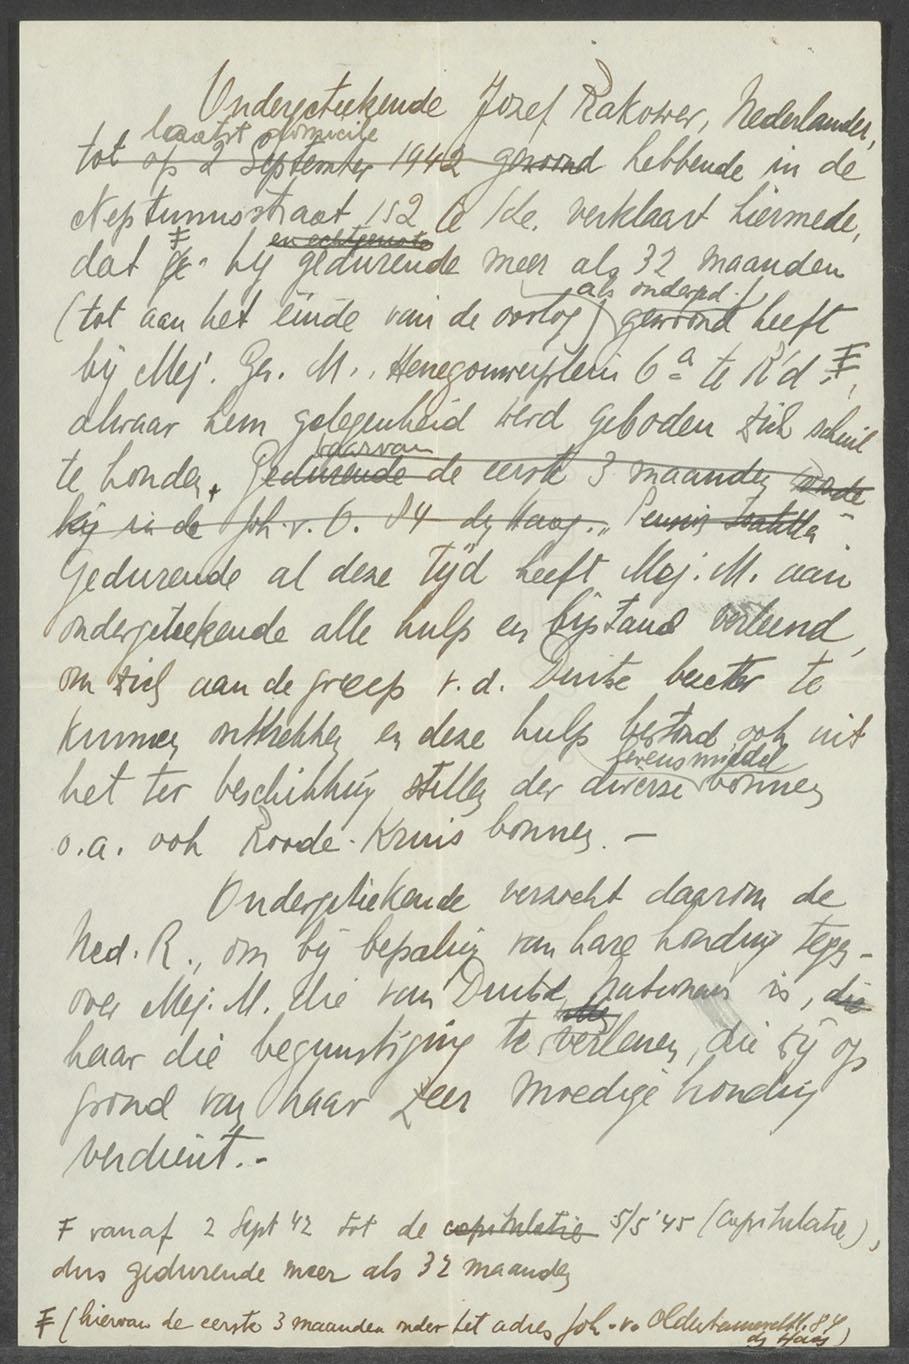 Ondergeteekende Jozef Rakower, Nederlander,
laatst domicilie
tot op 2 September 1942 gewoond hebbende in de
Neptunusstraat 152 te /de. verklaart hiermede,
en echtgenote
dat hij gedurende meer als 32 maanden
als onderged.
(tot aan het einde van de oorlog) gewoond heeft
bij Mej. Ger. M., Henegouwerplein 6a te R'd. ₮,
alwaar hem gelegenheid werd geboden zich schuil
waarvan
te houden. Gedurende de eerste 3 maanden
bij in de Joh. v. O. 84 den Haag. „Pension
Gedurende al deze tijd heeft Mej. M. aan
ondergeteekende alle hulp en bijstand verleend,
om zich aan de greep v.d. Duitse bezetter te
kunnen onttrekken en deze hulp bestond ook uit
levensmiddel
het ter beschikking stellen der diverse bonnen
o.a. ook Roode-Kruis bonnen. —
Ondergetekende verzocht daarom de
Ned. R., om bij bepaling van hare houding tegen-
over Mej. M. die van Duitse nationau is, die
haar die begunstiging te verlenen, die zij op
grond van haar zeer moedige houding
verdient.-
₮ vanaf 2 Sept '42 tot de capitulatie 5/5 '45 (Capitulatie),
dus gedurende meer als 32 maanden
₮ (hiervan de eerste 3 maanden onder het adres Joh. v. Oldenbarneveldt. 84
den Haag)